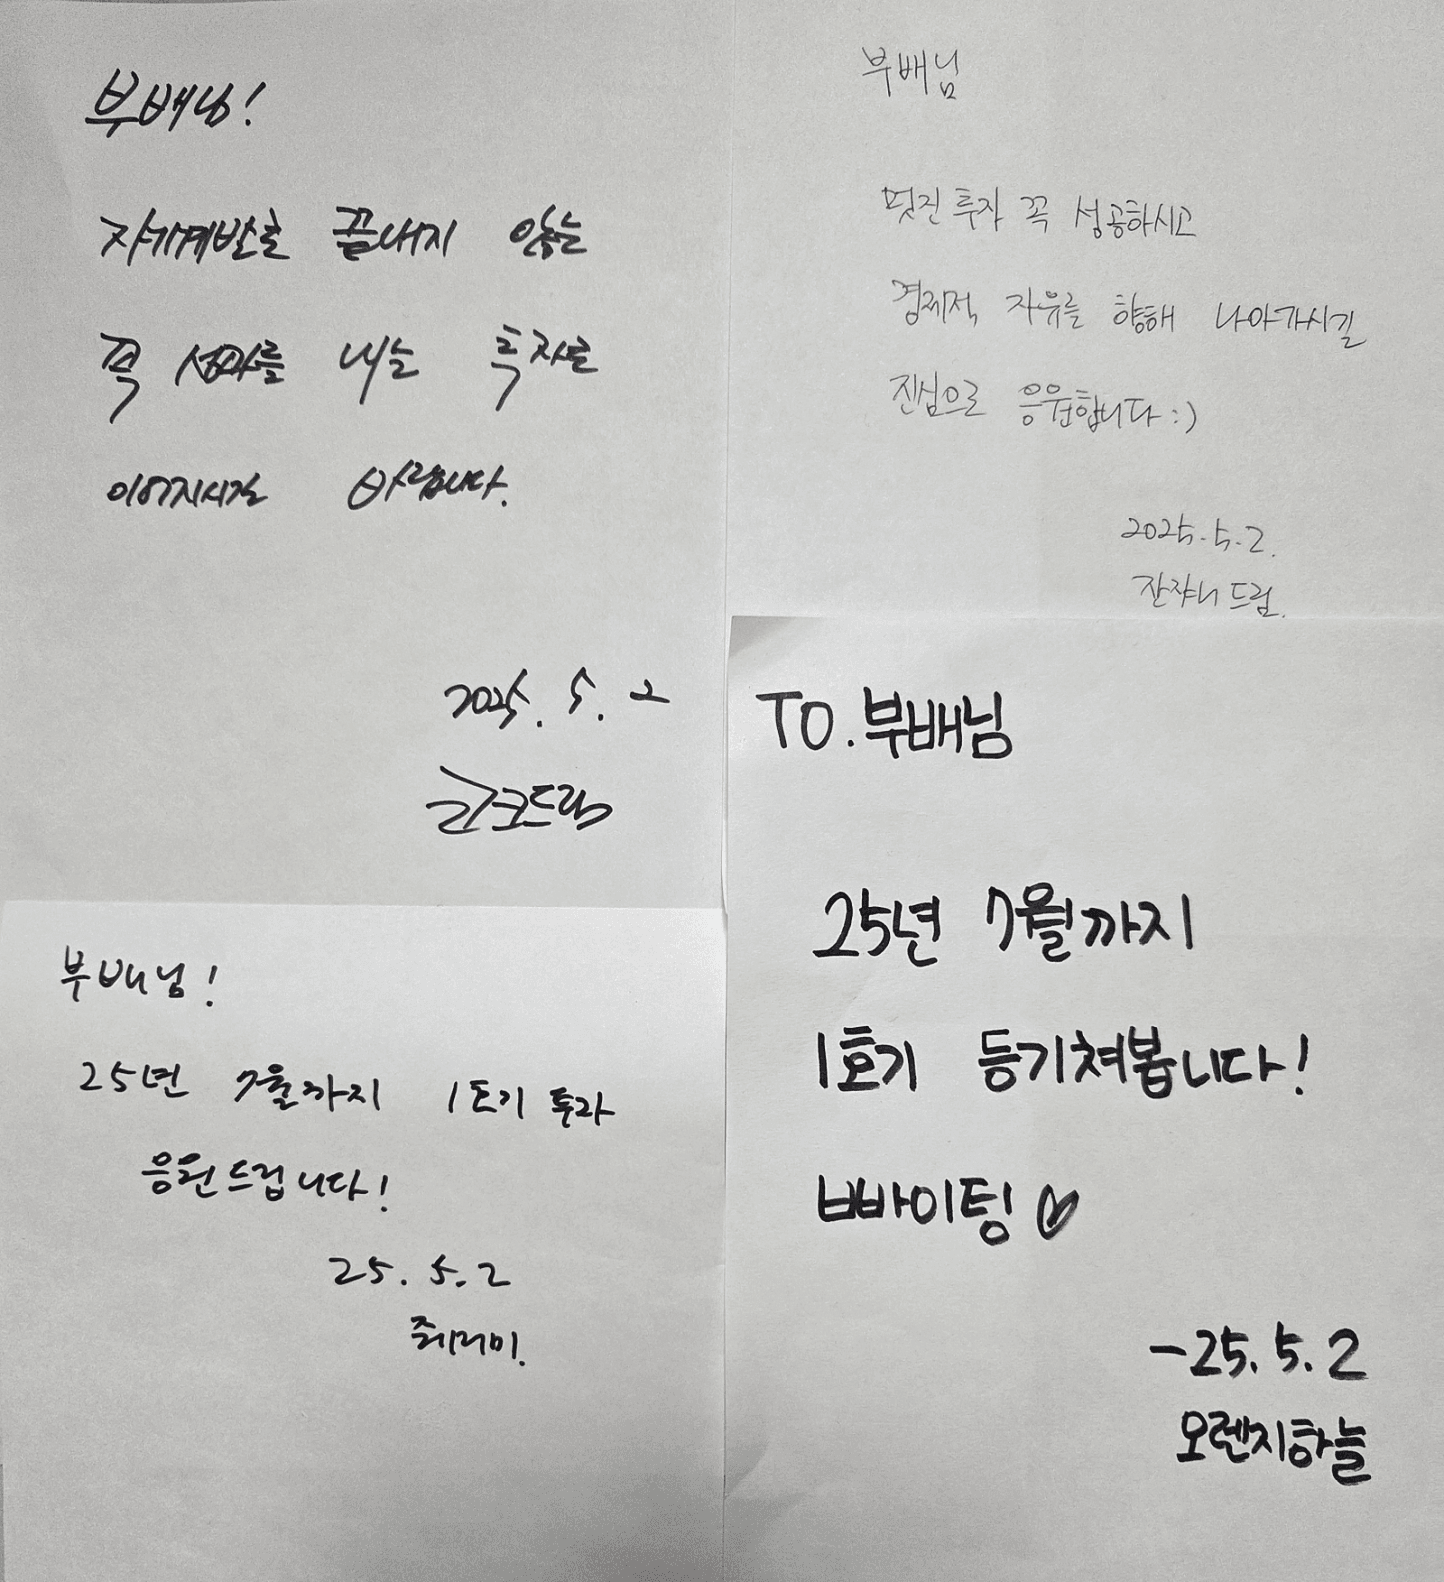 부배님!
자기계발로 끝내지 않는
꼭 성과를 내는 투자로
이어지시길 바랍니다.
2025. 5. 2
드림
부배님
멋진 투자 꼭 성공하시고
경제적 자유를 향해 나아가시길
진심으로 응원합니다 :)
2025. 5. 2.
잔쟈니 드림.
부배님!
25년 7월까지 1호기 투자
응원드립니다!
25. 5. 2
TO. 부배님
25년 7월까지
1호기 등기쳐봅니다!
빠이팅 ♡
- 25. 5. 2
오렌지하늘